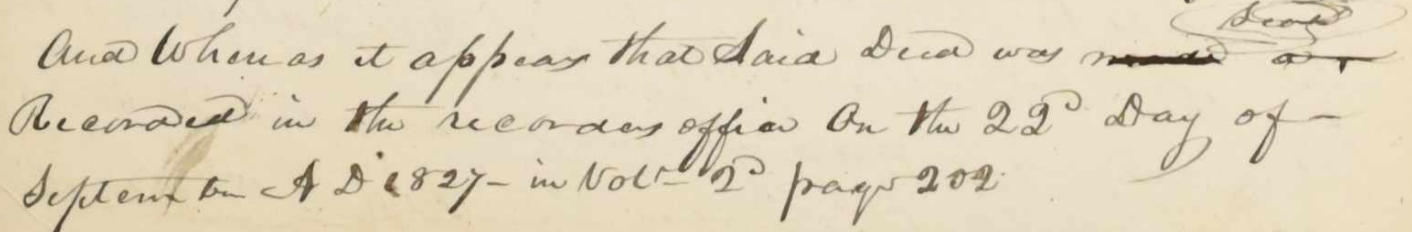 And Whereas it appears that Said Deed was
Recorded in the recorders office On the 22d Day of -
September A D 1827 - in Vol - 2d page 202